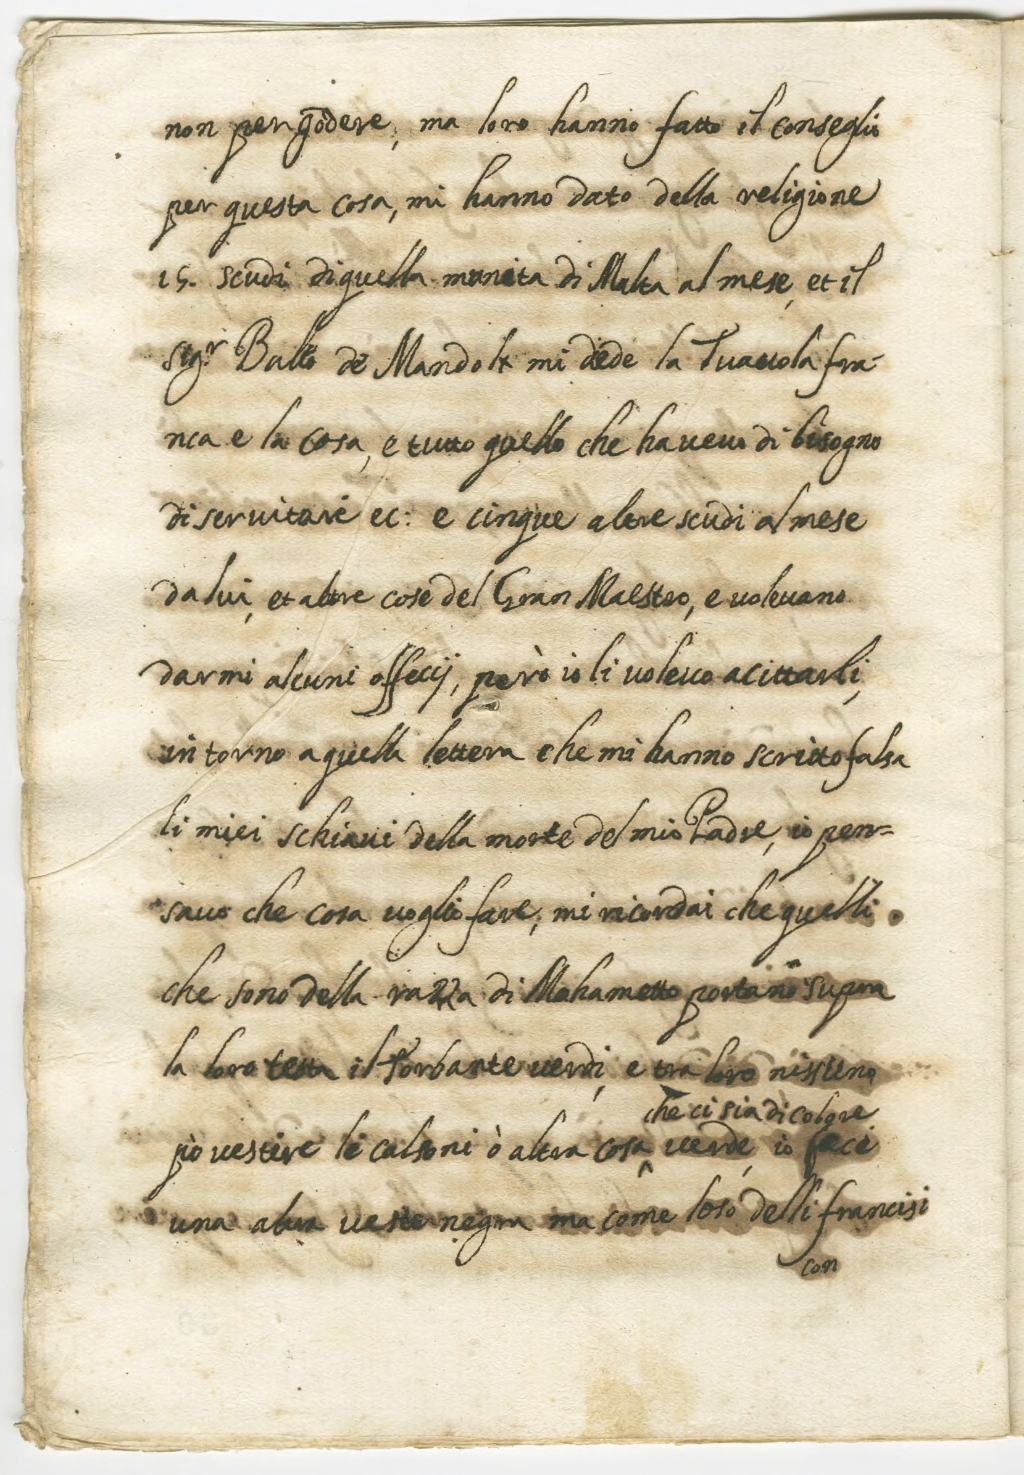 non per godere, ma loro hanno fatto il conseglio
per questa cosa, mi hanno dato della religione
15. scudi di quella munita di Malta al mese, et il
Sigr Balio de Mandols mi dede la Tuavola fra-
nca e la cosa, e tutto quello che havevo di bisogno
di servitori ec: e cinque altre scudi al mese
da lui, et altre cose del Gran Maestro, e volevano
darmi alcuni offecij, però io li volevo acittarli,
intorno a quella lettera che mi hanno scritto falsa
li miei schiavi della morte del mio Padre, io pen=
savo che cosa voglio fare, mi ricordai che quelli
che sono della razza di Mahametto portano supra
la loro testa il Torbante verdi, e tra loro nissuno
che ci sia di colore
pò vestire li calsoni ò altra cosa verde, io feci
una altra veste negra ma come loso delli francisi
con